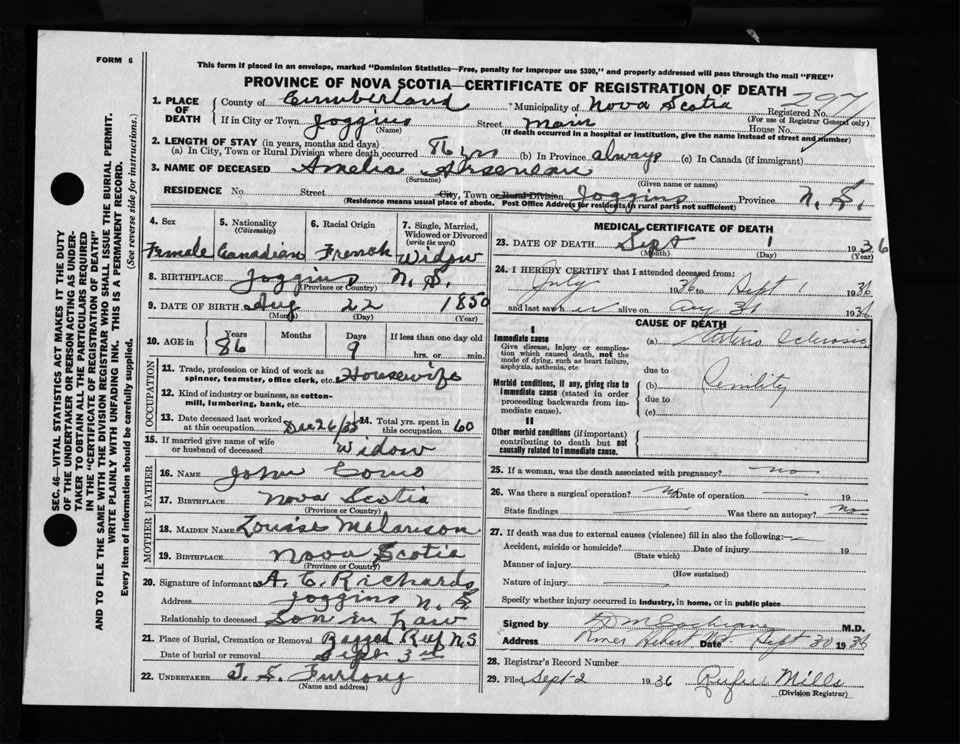 FORM 6
This form if placed in an envelope, marked "Dominion Statistics—Free, penalty for improper use $300," and properly addressed will pass through the mail "FREE"
PROVINCE OF NOVA SCOTIA—CERTIFICATE OF REGISTRATION OF DEATH
297
1. PLACE OF DEATH
County of Cumberland Municipality of Nova Scotia Registered No.
(For use of Registrar General only)
If in City or Town Joggins Street Main House No.
(Name) (If death occurred in a hospital or institution, give the name instead of street and number)
2. LENGTH OF STAY (in years, months and days)
(a) In City, Town or Rural Division where death occurred 86 yrs (b) In Province always (c) In Canada (if immigrant)
3. NAME OF DECEASED Amelia Arseneau
(Surname) (Given name or names)
RESIDENCE No. Street City, Town or Rural Division Joggins Province N. S.
(Residence means usual place of abode. Post Office Address for residents in rural parts not sufficient)
4. Sex 5. Nationality (Citizenship) 6. Racial Origin 7. Single, Married, Widowed or Divorced (write the word)
Female Canadian French Widow
8. BIRTHPLACE Joggins N. S.
(Province or Country)
9. DATE OF BIRTH Aug 22 1850
(Month) (Day) (Year)
10. AGE in Years 86 Months Days 9 If less than one day old hrs. or min.
OCCUPATION
11. Trade, profession or kind of work as spinner, teamster, office clerk, etc. Housewife
12. Kind of industry or business, as cotton-mill, lumbering, bank, etc.
13. Date deceased last worked at this occupation Dec 26/35 14. Total yrs. spent in this occupation 60
15. If married give name of wife or husband of deceased Widow
FATHER
16. NAME John Como
17. BIRTHPLACE Nova Scotia
(Province or Country)
MOTHER
18. MAIDEN NAME Louise Melanson
19. BIRTHPLACE Nova Scotia
(Province or Country)
20. Signature of informant A. E. Richards
Address Joggins N. S.
Relationship to deceased Son in Law
21. Place of Burial, Cremation or Removal Ragged Reef N.S
Date of burial or removal Sept 3rd
22. UNDERTAKER T. S. Furlong
(Name and address)
MEDICAL CERTIFICATE OF DEATH
23. DATE OF DEATH Sept 1 1936
(Month) (Day) (Year)
24. I HEREBY CERTIFY that I attended deceased from:
July 1936 to Sept 1 1936
and last saw her alive on Aug 31 1936
CAUSE OF DEATH
I
Immediate cause
Give disease, injury or complication which caused death, not the mode of dying, such as heart failure, asphyxia, asthenia, etc
(a) Arterio Sclerosis
due to
Morbid conditions, if any, giving rise to immediate cause (stated in order proceeding backwards from immediate cause).
(b) Senility
due to
(c)
II
Other morbid conditions (if important) contributing to death but not causally related to immediate cause.
25. If a woman, was the death associated with pregnancy? no
26. Was there a surgical operation? no Date of operation 19
State findings Was there an autopsy? no
27. If death was due to external causes (violence) fill in also the following:—
Accident, suicide or homicide? Date of injury 19
(State which)
Manner of injury
(How sustained)
Nature of injury
Specify whether injury occurred in industry, in home, or in public place
Signed by D M Cochrane M.D.
Address River Hebert N.S. Date Sept 30 1936
28. Registrar's Record Number
29. Filed Sept-2 1936 Rufus Mills
(Division Registrar)
SEC. 46—VITAL STATISTICS ACT MAKES IT THE DUTY
OF THE UNDERTAKER OR PERSON ACTING AS UNDER-
TAKER TO OBTAIN ALL THE PARTICULARS REQUIRED
IN THE "CERTIFICATE OF REGISTRATION OF DEATH"
AND TO FILE THE SAME WITH THE DIVISION REGISTRAR WHO SHALL ISSUE THE BURIAL PERMIT.
WRITE PLAINLY WITH UNFADING INK. THIS IS A PERMANENT RECORD.
Every item of information should be carefully supplied. (See reverse side for instructions.)